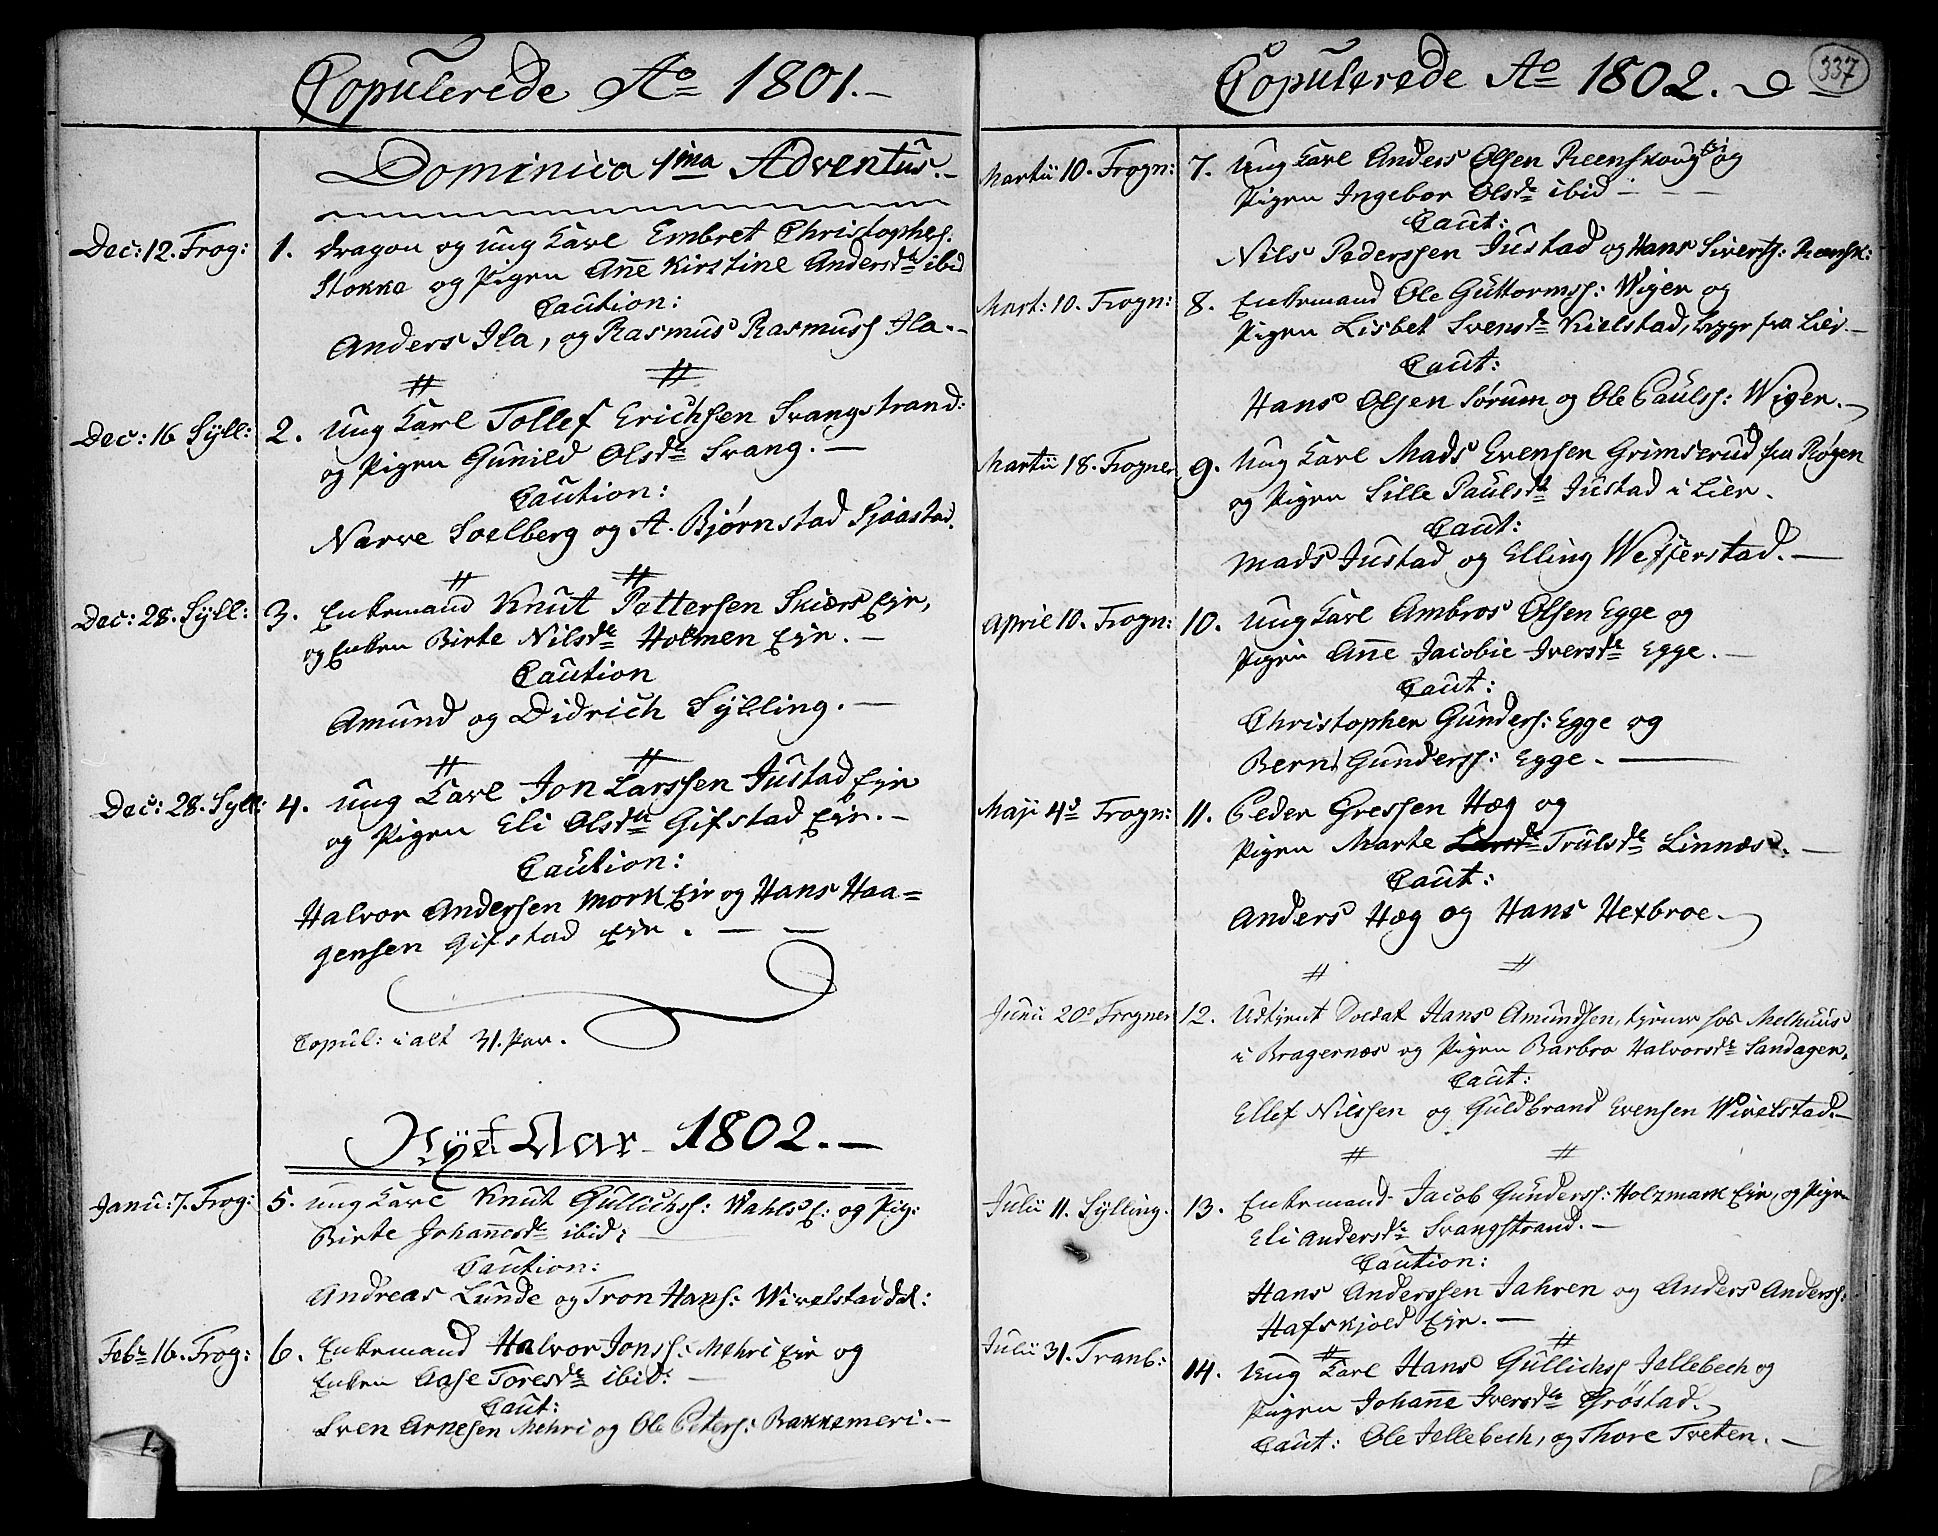 Copulerede Ao 1801.
Dominica 1ma Adventus.
Dec: 12. Frog: 1. Dragon og ung Karl Embret Christophers:
Stokke og Pigen Anne Kirstine Andersdr ibid
Caution:
Anders Ila, og Rasmus Rasmuss Ila.
Dec: 16 Sÿll: 2. ung Karl Tollef Erichsen Svangstrand:
og Pigen Gunild Olsdr Svang.
Caution:
Narve Soelberg og A. Bjørnstad Sjaastad.
Dec: 28. Sÿll: 3. Enkemand Knut Pettersen Skiærs Eje,
og Enken Birte Nilsdr Holmen Eje.
Caution
Amund og Didrich Sÿlling.
Dec: 28. Syll: 4. ung Karl Jon Larssen Justad Eje
og Pigen Eli Olsdr Gifstad Eje.
Caution:
Halvor Andersen Mork Eje og Hans Haa=
gensen Gifstad Eje.
Copul: i alt 31. Par.
Nÿet Aar 1802.
Janu: 7. Frog: 5. ung Karl Knut Gullichss: Wahls E: og Pig:
Birte Johannesdr ibid:
Caution:
Andreas Lunde og Tron Hans: Wivelstad
Febr 16. Frog: 6. Enkemand Halvor Jonss: Mehri Eje og
Enken Aase Toresdr ibid:
Caut:
Sven Arnesen Mehri og Ole Peters: Bakkemeri.
Copulerede Ao 1802.
337
Martii 10. Frogn: 7. ung Karl Anders Olsen Reenskoug og
Pigen Ingebor Olsdr ibid
Caut:
Nils Pederssen Justad og Hans Sivertss: Reensk:
Mart: 10. Frogn: 8. Enkemand Ole Guttormss: Wiger og
Pigen Lisbet Svensdr Kielstad, begge fra Lier.
Caut:
Hans Olsen Sørum og Ole Paulss: Wiger.
Martii 18. Frogner 9. Ung Karl Mads Evensen Grimsrud fra Røgen
og Pigen Sille Paulsdr Justad i Lier.
Caut:
Mads Justad og Elling Wefferstad.
April 10. Frogn: 10. Ung Karl Ambros Olsen Egge og
Pigen Anne Jacobie Iversdr Egge.
Caut:
Christopher Gunders: Egge og
Bernt Gunderss: Egge.
Maji 4d Frogn: 11. Peder Gressen Hæg og
Pigen Marte Trulsdr Linnæs.
Caut:
Anders Hæg og Hans Hexbroe
Junii 20d Frogner 12. Udtient Soldat Hans Amundsen, tjener hos Melhuus
i Bragernæs og Pigen Barbro Halvorsdr Sandager.
Caut:
Ellef Nilssen og Guldbrand Evensen Wivelstad.
Julii 11. Sylling. 13. Enkemand Jacob Gunderss: Holzmark Eje, og Pige
Eli Andersdr Svangstrand.
Caution:
Hans Anderssen Jahren og Anders Anderss:
Hafskjold Eje.
Julii 31. Tranb: 14. Ung Karl Hans Gullichss Jellebech og
Pigen Johanne Iversdr Grøstad.
Caut: Ole Jellebech, og Thore Tveten.